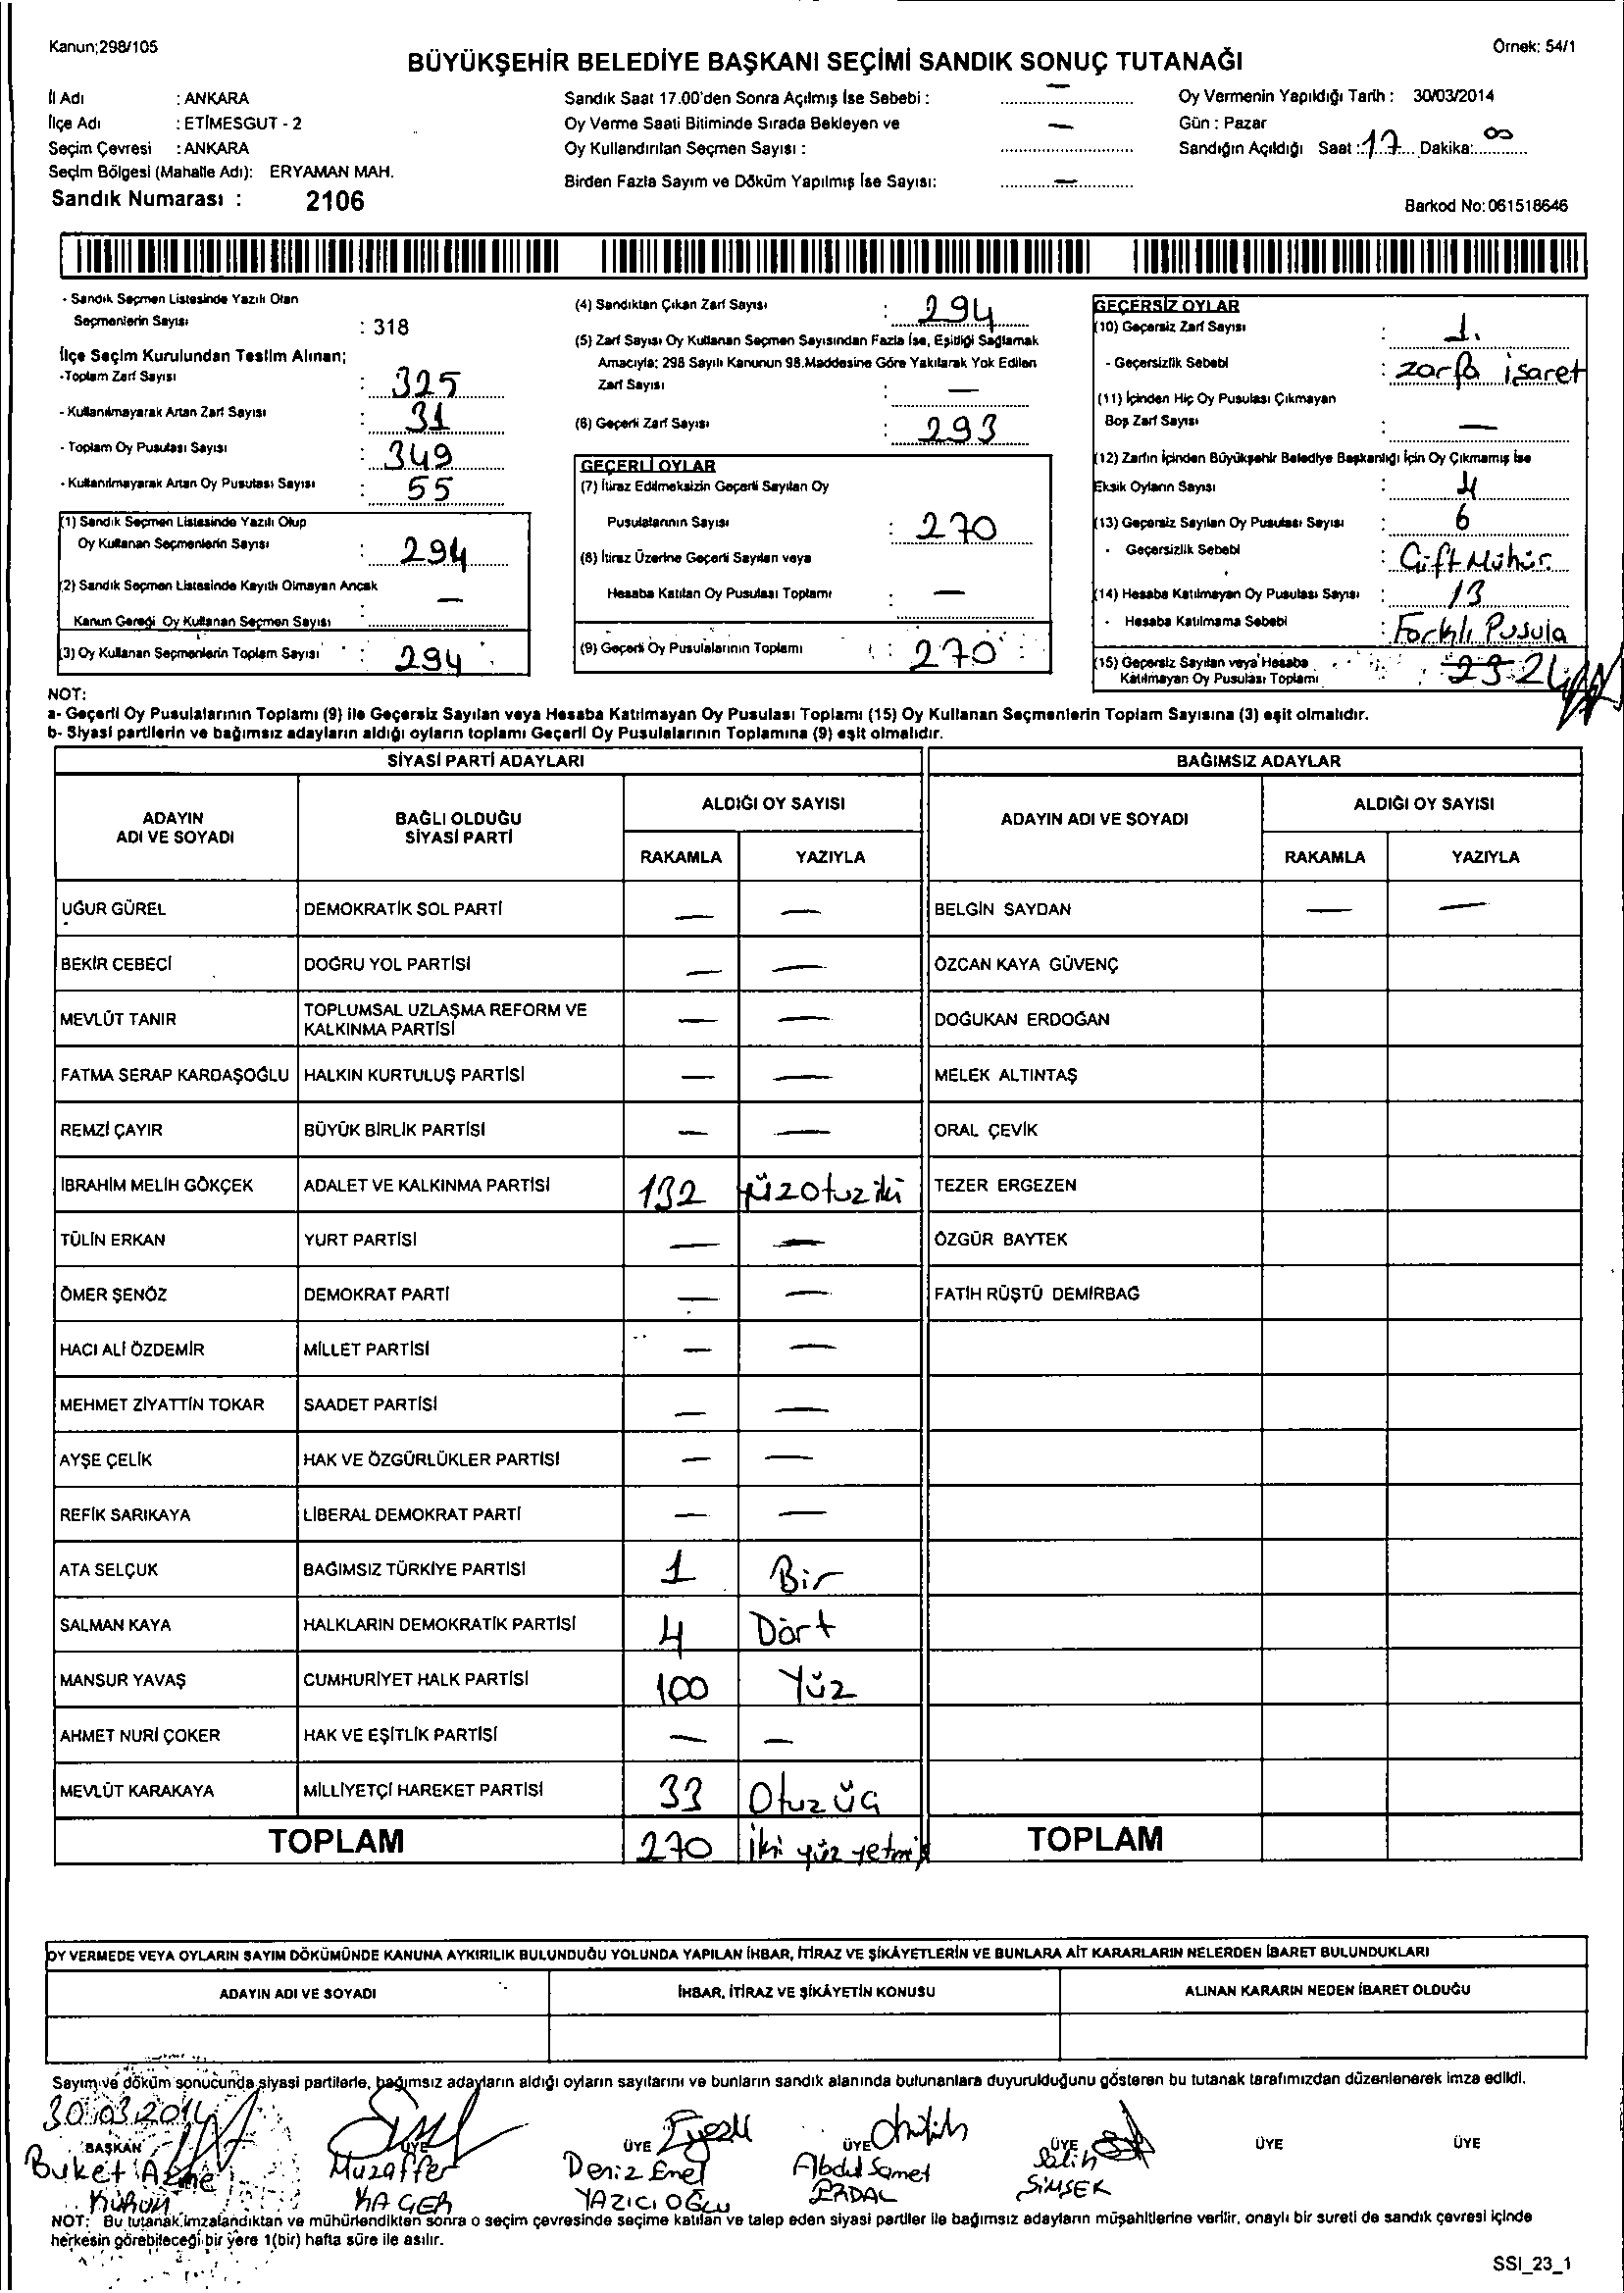 Kanun;298/105
Örnek: 54/1
BÜYÜKŞEHİR BELEDİYE BAŞKANI SEÇİMİ SANDIK SONUÇ TUTANAĞI
İl Adı : ANKARA
İlçe Adı : ETİMESGUT - 2
Seçim Çevresi : ANKARA
Seçim Bölgesi (Mahalle Adı): ERYAMAN MAH.
Sandık Numarası : 2106
Sandık Saat 17.00'den Sonra Açılmış İse Sebebi : —
Oy Verme Saati Bitiminde Sırada Bekleyen ve
Oy Kullandırılan Seçmen Sayısı : —
Birden Fazla Sayım ve Döküm Yapılmış İse Sayısı: —
Oy Vermenin Yapıldığı Tarih : 30/03/2014
Gün : Pazar
Sandığın Açıldığı Saat : 17 Dakika: 00
Barkod No: 061518646
- Sandık Seçmen Listesinde Yazılı Olan
Seçmenlerin Sayısı : 318
İlçe Seçim Kurulundan Teslim Alınan;
-Toplam Zarf Sayısı : 325
- Kullanılmayarak Artan Zarf Sayısı : 31
- Toplam Oy Pusulası Sayısı : 349
- Kullanılmayarak Artan Oy Pusulası Sayısı : 55
(1) Sandık Seçmen Listesinde Yazılı Olup
Oy Kullanan Seçmenlerin Sayısı : 294
(2) Sandık Seçmen Listesinde Kayıtlı Olmayan Ancak
Kanun Gereği Oy Kullanan Seçmen Sayısı : —
(3) Oy Kullanan Seçmenlerin Toplam Sayısı : 294
(4) Sandıktan Çıkan Zarf Sayısı : 294
(5) Zarf Sayısı Oy Kullanan Seçmen Sayısından Fazla İse, Eşitliği Sağlamak
Amacıyla; 298 Sayılı Kanunun 98.Maddesine Göre Yakılarak Yok Edilen
Zarf Sayısı : —
(6) Geçerli Zarf Sayısı : 293
GEÇERLİ OYLAR
(7) İtiraz Edilmeksizin Geçerli Sayılan Oy
Pusulalarının Sayısı : 270
(8) İtiraz Üzerine Geçerli Sayılan veya
Hesaba Katılan Oy Pusulası Toplamı : —
(9) Geçerli Oy Pusulalarının Toplamı : 270
GEÇERSİZ OYLAR
(10) Geçersiz Zarf Sayısı : 1.
- Geçersizlik Sebebi : zarfa işaret
(11) İçinden Hiç Oy Pusulası Çıkmayan
Boş Zarf Sayısı : —
(12) Zarfın İçinden Büyükşehir Belediye Başkanlığı İçin Oy Çıkmamış İse
Eksik Oyların Sayısı : 4
(13) Geçersiz Sayılan Oy Pusulası Sayısı : 6
- Geçersizlik Sebebi : Çift Mühür
(14) Hesaba Katılmayan Oy Pusulası Sayısı : 13
- Hesaba Katılmama Sebebi : Farklı Pusula
(15) Geçersiz Sayılan veya Hesaba
Katılmayan Oy Pusulası Toplamı : 23 24
NOT:
a- Geçerli Oy Pusulalarının Toplamı (9) ile Geçersiz Sayılan veya Hesaba Katılmayan Oy Pusulası Toplamı (15) Oy Kullanan Seçmenlerin Toplam Sayısına (3) eşit olmalıdır.
b- Siyasi partilerin ve bağımsız adayların aldığı oyların toplamı Geçerli Oy Pusulalarının Toplamına (9) eşit olmalıdır.
SİYASİ PARTİ ADAYLARI
ADAYIN ADI VE SOYADI BAĞLI OLDUĞU SİYASİ PARTİ ALDIĞI OY SAYISI
RAKAMLA YAZIYLA
UĞUR GÜREL DEMOKRATİK SOL PARTİ — —
BEKİR CEBECİ DOĞRU YOL PARTİSİ — —
MEVLÜT TANIR TOPLUMSAL UZLAŞMA REFORM VE KALKINMA PARTİSİ — —
FATMA SERAP KARDAŞOĞLU HALKIN KURTULUŞ PARTİSİ — —
REMZİ ÇAYIR BÜYÜK BİRLİK PARTİSİ — —
İBRAHİM MELİH GÖKÇEK ADALET VE KALKINMA PARTİSİ 132 yüzotuziki
TÜLİN ERKAN YURT PARTİSİ — —
ÖMER ŞENÖZ DEMOKRAT PARTİ — —
HACI ALİ ÖZDEMİR MİLLET PARTİSİ — —
MEHMET ZİYATTİN TOKAR SAADET PARTİSİ — —
AYŞE ÇELİK HAK VE ÖZGÜRLÜKLER PARTİSİ — —
REFİK SARIKAYA LİBERAL DEMOKRAT PARTİ — —
ATA SELÇUK BAĞIMSIZ TÜRKİYE PARTİSİ 1 Bir
SALMAN KAYA HALKLARIN DEMOKRATİK PARTİSİ 4 Dört
MANSUR YAVAŞ CUMHURİYET HALK PARTİSİ 100 Yüz
AHMET NURİ ÇOKER HAK VE EŞİTLİK PARTİSİ — —
MEVLÜT KARAKAYA MİLLİYETÇİ HAREKET PARTİSİ 33 Otuz üç
TOPLAM 270 İki yüz yetmiş
BAĞIMSIZ ADAYLAR
ADAYIN ADI VE SOYADI ALDIĞI OY SAYISI
RAKAMLA YAZIYLA
BELGİN SAYDAN — —
ÖZCAN KAYA GÜVENÇ
DOĞUKAN ERDOĞAN
MELEK ALTINTAŞ
ORAL ÇEVİK
TEZER ERGEZEN
ÖZGÜR BAYTEK
FATİH RÜŞTÜ DEMİRBAĞ
TOPLAM
OY VERMEDE VEYA OYLARIN SAYIM DÖKÜMÜNDE KANUNA AYKIRILIK BULUNDUĞU YOLUNDA YAPILAN İHBAR, İTİRAZ VE ŞİKÂYETLERİN VE BUNLARA AİT KARARLARIN NELERDEN İBARET BULUNDUKLARI
ADAYIN ADI VE SOYADI İHBAR, İTİRAZ VE ŞİKÂYETİN KONUSU ALINAN KARARIN NEDEN İBARET OLDUĞU
Sayım ve döküm sonucunda siyasi partilerle, bağımsız adayların aldığı oyların sayılarını ve bunların sandık alanında bulunanlara duyurulduğunu gösteren bu tutanak tarafımızdan düzenlenerek imza edildi.
30.03.2014
BAŞKAN ÜYE ÜYE ÜYE ÜYE ÜYE ÜYE
Buket Muzaffer Deniz Enel Abdul Samet Salih
YAZICIOĞLU ERDAL ŞİMŞEK
NOT: Bu tutanak imzalandıktan ve mühürlendikten sonra o seçim çevresinde seçime katılan ve talep eden siyasi partiler ile bağımsız adayların müşahitlerine verilir, onaylı bir sureti de sandık çevresi içinde
herkesin görebileceği bir yere 1(bir) hafta süre ile asılır.
SSI_23_1